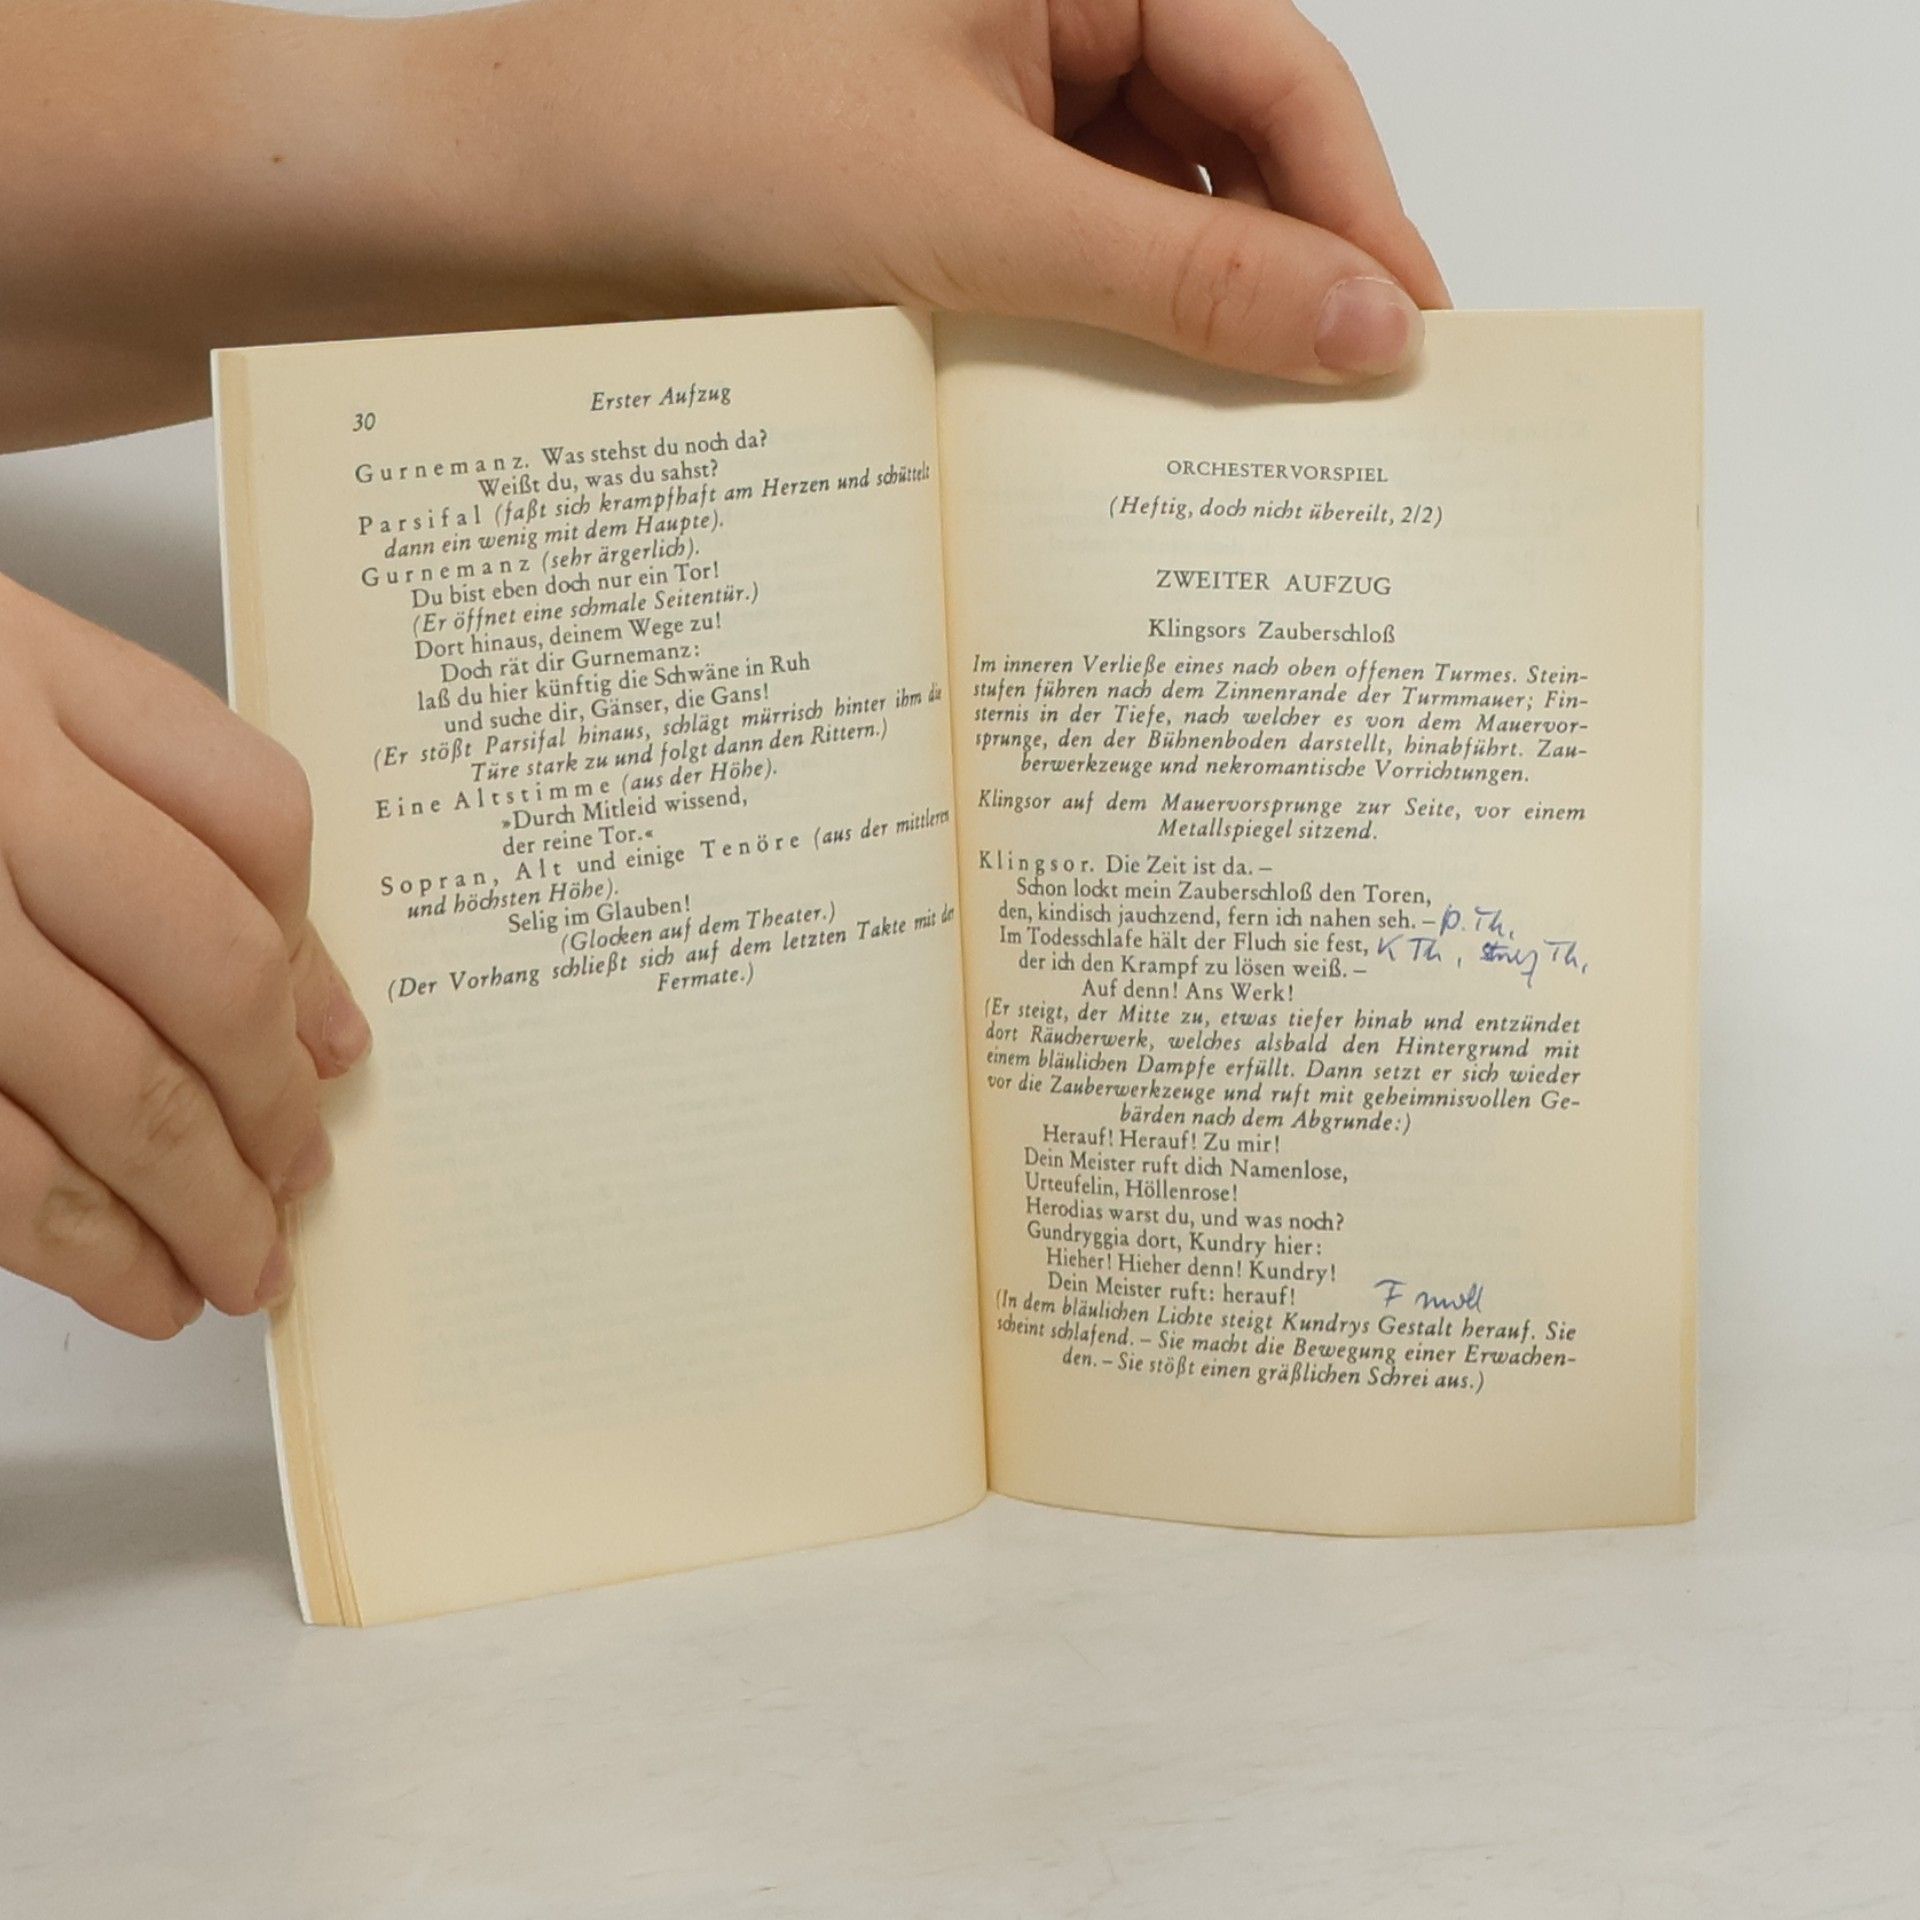 30
Erster Aufzug
Gurnemanz. Was stehst du noch da?
Weißt du, was du sahst?
Parsifal (faßt sich krampfhaft am Herzen und schüttelt
dann ein wenig mit dem Haupte).
Gurnemanz (sehr ärgerlich).
Du bist eben doch nur ein Tor!
(Er öffnet eine schmale Seitentür.)
Dort hinaus, deinem Wege zu!
Doch rät dir Gurnemanz:
laß du hier künftig die Schwäne in Ruh
und suche dir, Gänser, die Gans!
(Er stößt Parsifal hinaus, schlägt mürrisch hinter ihm die
Türe stark zu und folgt dann den Rittern.)
Eine Altstimme (aus der Höhe).
»Durch Mitleid wissend,
der reine Tor.«
Sopran, Alt und einige Tenöre (aus der mittleren
und höchsten Höhe).
Selig im Glauben!
(Glocken auf dem Theater.)
(Der Vorhang schließt sich auf dem letzten Takte mit der
Fermate.)
ORCHESTERVORSPIEL
(Heftig, doch nicht übereilt, 2/2)
ZWEITER AUFZUG
Klingsors Zauberschloß
Im inneren Verließe eines nach oben offenen Turmes. Stein-
stufen führen nach dem Zinnenrande der Turmmauer; Fin-
sternis in der Tiefe, nach welcher es von dem Mauervor-
sprunge, den der Bühnenboden darstellt, hinabführt. Zau-
berwerkzeuge und nekromantische Vorrichtungen.
Klingsor auf dem Mauervorsprunge zur Seite, vor einem
Metallspiegel sitzend.
Klingsor. Die Zeit ist da. –
Schon lockt mein Zauberschloß den Toren,
den, kindisch jauchzend, fern ich nahen seh. – p. Th,
Im Todesschlafe hält der Fluch sie fest, K Th, Th,
der ich den Krampf zu lösen weiß. –
Auf denn! Ans Werk!
(Er steigt, der Mitte zu, etwas tiefer hinab und entzündet
dort Räucherwerk, welches alsbald den Hintergrund mit
einem bläulichen Dampfe erfüllt. Dann setzt er sich wieder
vor die Zauberwerkzeuge und ruft mit geheimnisvollen Ge-
bärden nach dem Abgrunde:)
Herauf! Herauf! Zu mir!
Dein Meister ruft dich Namenlose,
Urteufelin, Höllenrose!
Herodias warst du, und was noch?
Gundryggia dort, Kundry hier:
Hieher! Hieher denn! Kundry!
Dein Meister ruft: herauf! F moll
(In dem bläulichen Lichte steigt Kundrys Gestalt herauf. Sie
scheint schlafend. – Sie macht die Bewegung einer Erwachen-
den. – Sie stößt einen gräßlichen Schrei aus.)